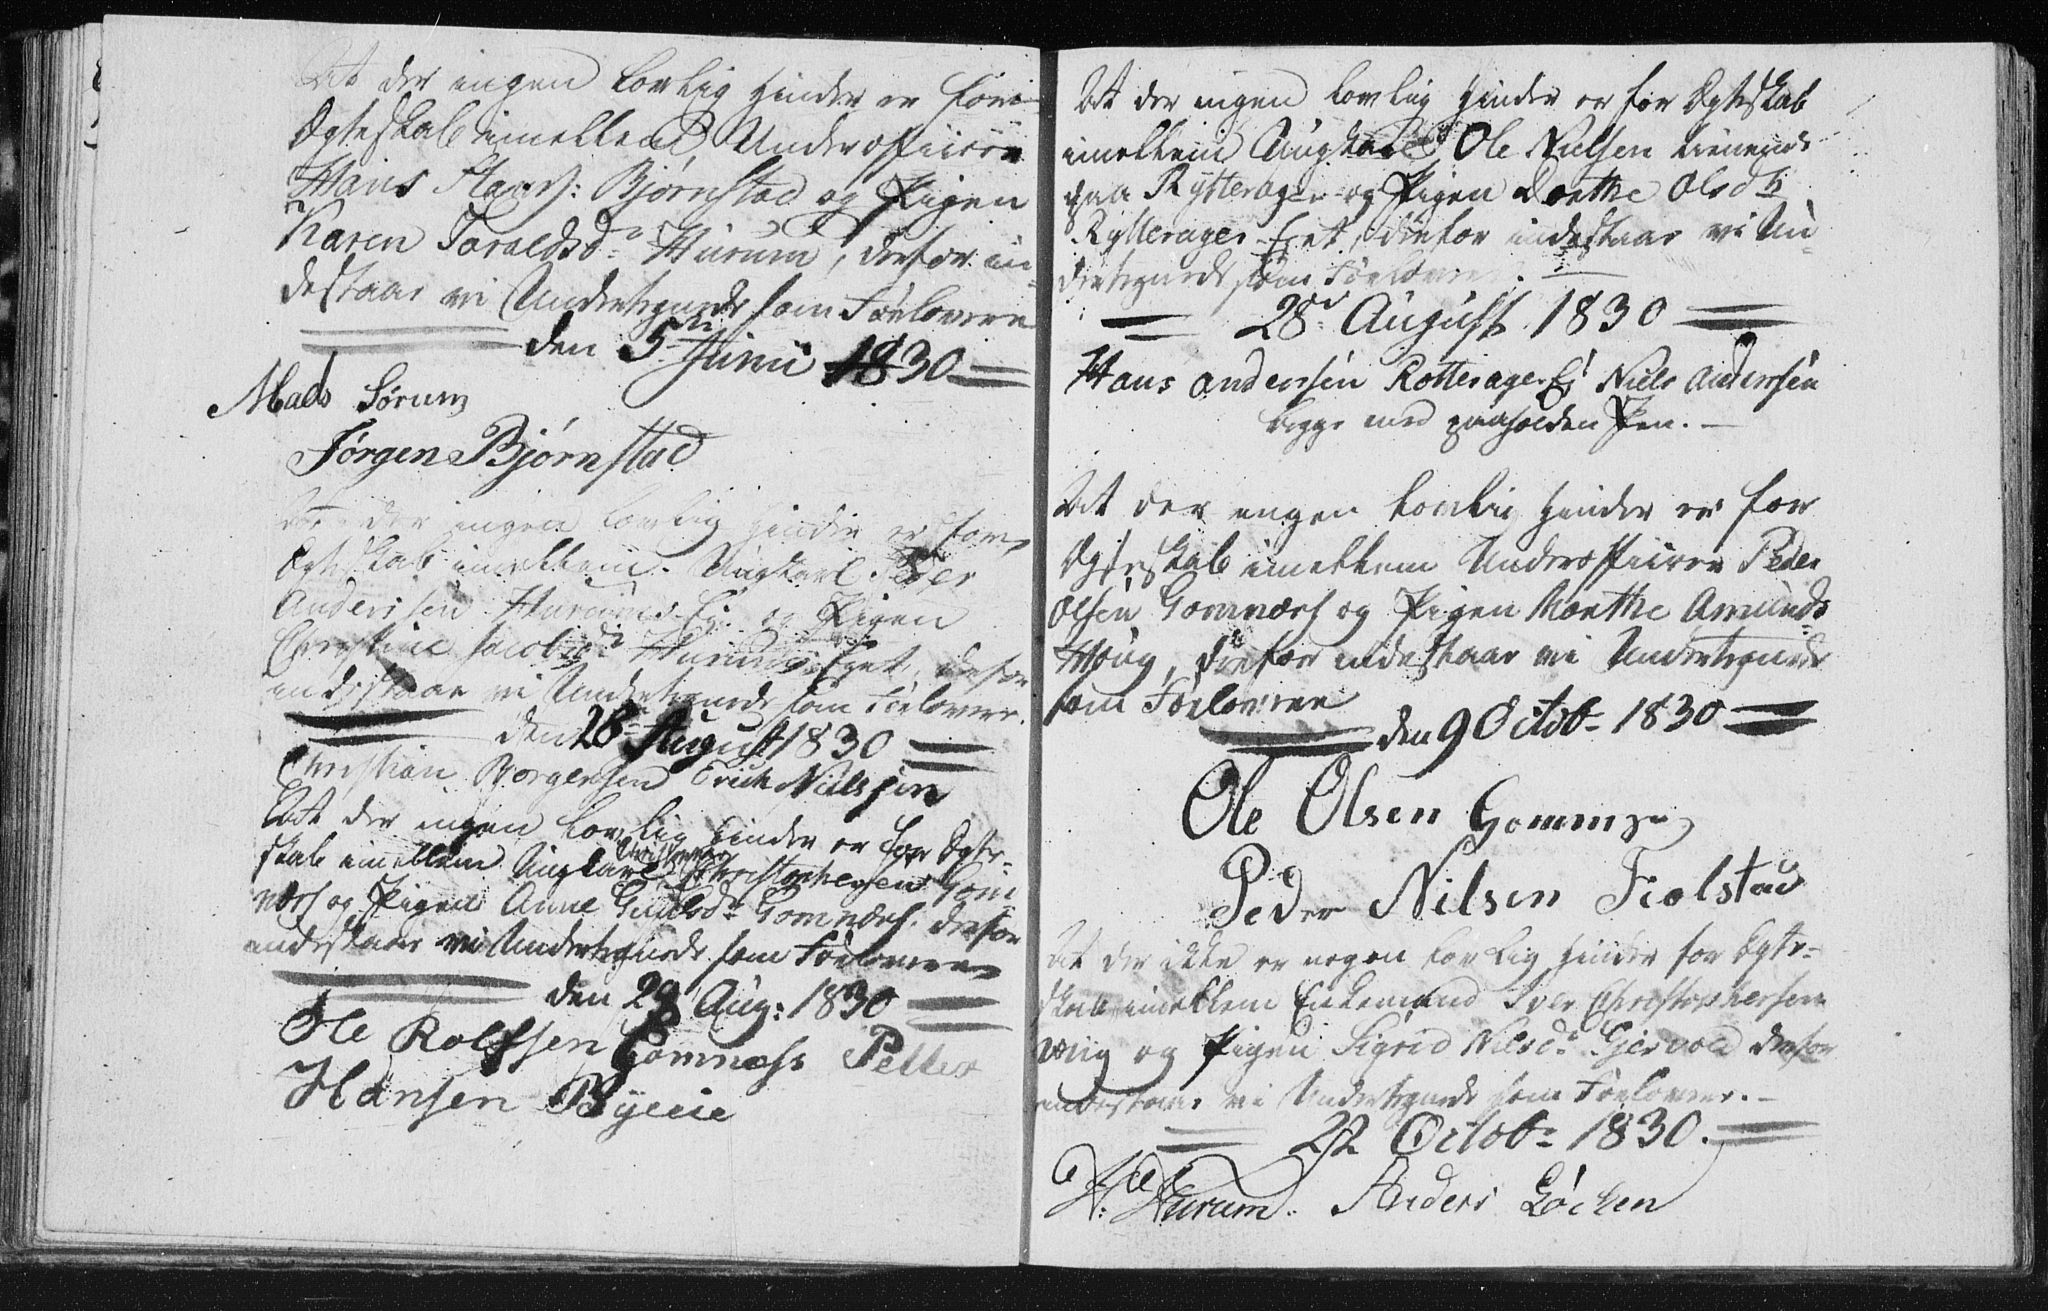 At der ingen lovlig Hinder er for
Ægteskab imellem Underofficeer
Hans Hans: Bjørnstad og Pigen
Karen Taraldsdr Hurum, derfor in-
destaar vi Undertegnede som Forlovere
den 5te Junii 1830
Mads Sørum
Jørgen Bjørnstad
At der ingen lovlig Hinder er for
Ægteskab imellem Ungkarl Peder
Andersen Hurums Ej: og Pigen
Christine Jacobsdr Hurums Eyet, derfor
indestaar vi Undertegnede som Forlovere.
den 28 August 1830
Christian Borgersen Erich Nielssen
At der ingen lovlig Hinder er for Ægte-
skab imellem Ungkarl Christopher Christophersen Gom
næs og Pigen Anne Gulbrdr Gomnæs, derfor
indestaar vi Undertegnede som Forlovere
den 28 Aug: 1830
Ole Rolfsen Gomnæss Petter
Hansen Byeie
At der ingen lovlig Hinder er for Ægteskab
imellem Ungkarl Ole Nielsen tienende
paa Rytterager og Pigen Dorthe Olsdr
Rytterager Eyet, derfor indestaar vi Un
dertegnede som Forlovere.
28de August 1830
Hans Andersen Rotterager Ej Niels Andersen
begge med paaholden Pen.
At der ingen lovlig Hinder er for
Ægteskab imellem Underofficeer Peder
Olsen Gomnæs og Pigen Marthe Amunds
Houg, derfor indestaar vi Undertegnede
som Forlovere
den 9 Octob- 1830
Ole Olsen
Peder Nilsen Fiolstad
At der ikke er nogen lovlig Hinder for Ægte-
skab imellem Enkemand Iver Christophersen
og Pigen Sigrid Nilsdr Gjesvold derfor
indestaar vi Undertegnede som Forlovere.
22 Octobr 1830.
H: Hurum. Anders Løchen